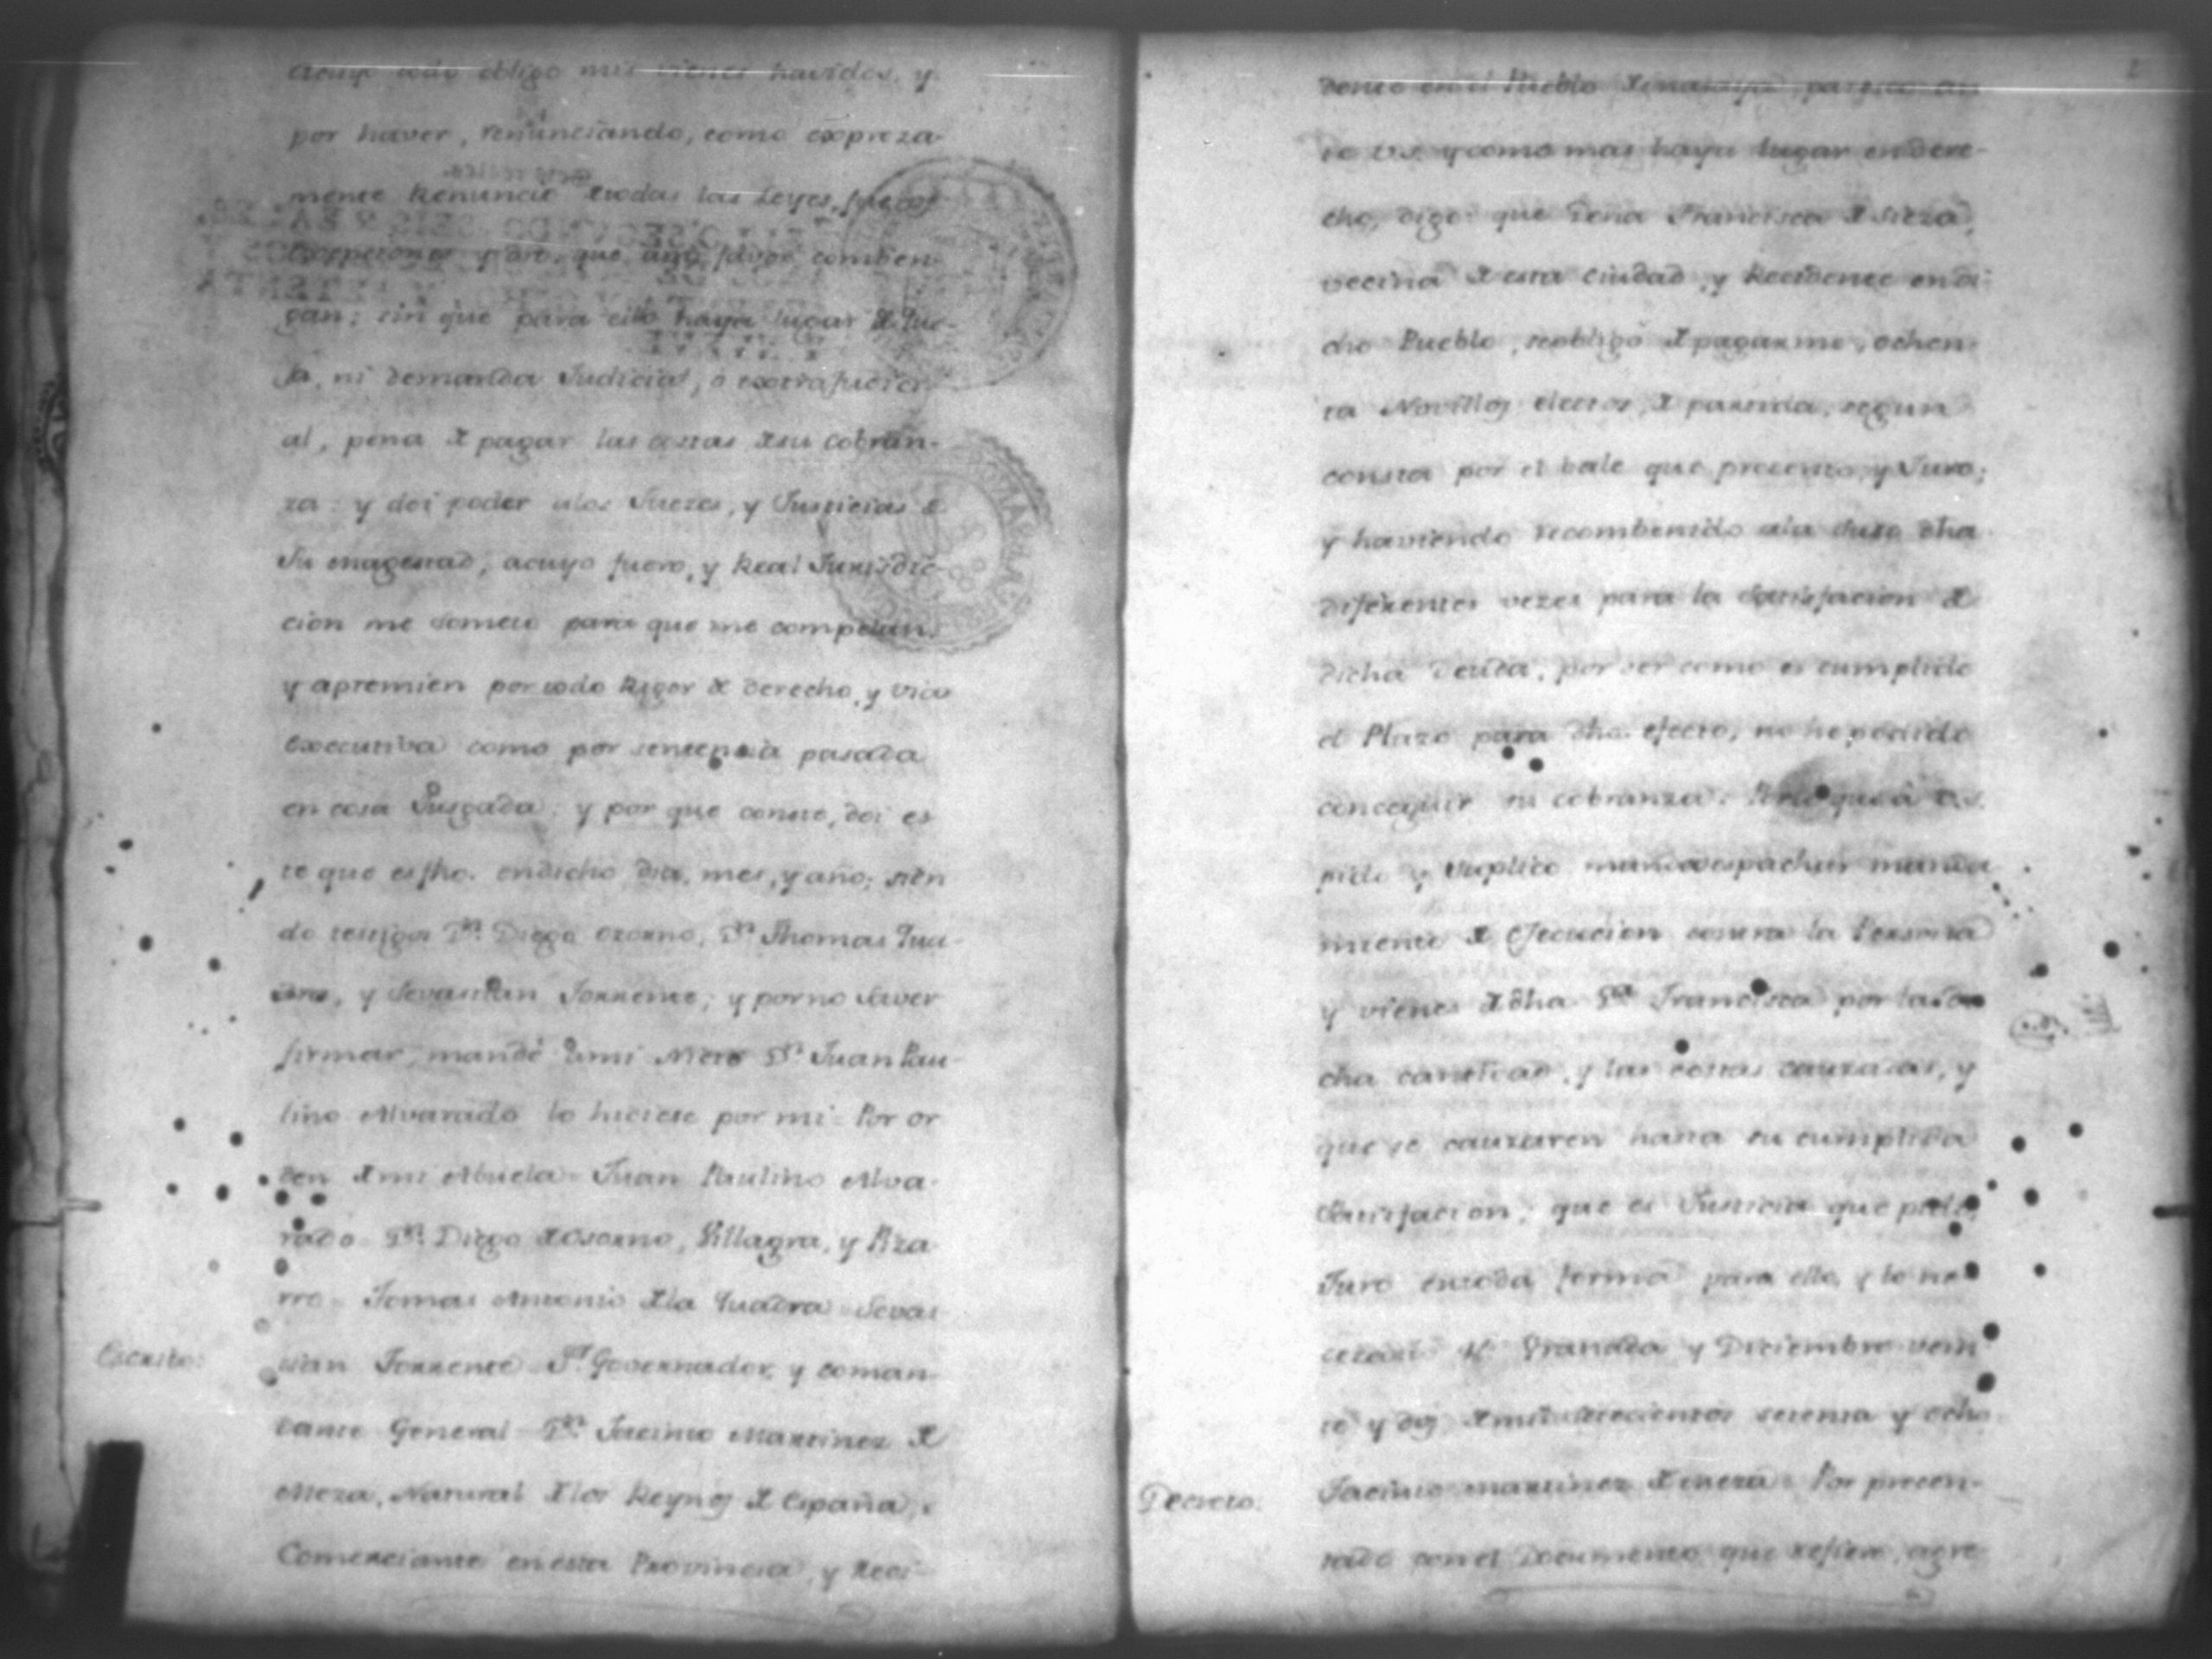 todo obligo mis vienes havidos, y
por haver, renunciando, como expreza-
mente Renuncio todas las Leyes, fueros
que à mi favor comben-
gan; sin que para ello haya lugar de Que-
ja, ni demanda Judicial, o extrajudici-
al, pena de pagar las costas de su cobran-
za: y doi poder alos Juezes, y Justicias de
Su magestad, acuyo fuero, y Real Jurisdic-
cion me someto para que me compelan,
y apremien por todo Rigor de derecho, y via
executiva como por sentencia pasada
en cosa Jusgada: y por que conste, doi es-
te que es fho. endicho dia, mes, y año; sien
do testigos Dn. Diego Ozorno, Dn. Thomas Qua-
dra, y Sevastian Torrente; y porno saver
firmar, mandé à mi Nieto Dn. Juan Pau-
lino Alvarado lo hiciese por mi= Por or
den de mi Abuela= Juan Paulino Alva-
rado= Dn. Diego de Osorno, Villagra, y Piza
rro= Tomas Antonio de la Quadra= Sevas
Escrito: tian Torrente= Sor. Governador, y coman-
dante General= Dn. Jacinto Martinez de
Meza, Natural de los Reynos de España,
Comerciante en esta Provincia, y Resi-
dente en el Pueblo de parezco an
te V.S. y como mas haya lugar en dere-
cho, digo: que Doña Francisca de
vecina de esta Ciudad, y Recidente en di-
cho Pueblo, se obligó de pagarme, ochen-
ta Novillos electos, de partida, segun
consta por el bale que presento, y Juro;
y haviendo recombenido ala suso dha
diferentes vezes para la Satisfacion de
dicha Deuda, por ser como es cumplido
el Plazo para dho. efecto, no he podido
conceguir su cobranza. Por lo que à V.S.
pido y Suplico mande despachar manda
miento de Ejecucion contra la Persona
y vienes de dha. Da. Francisca por la di-
cha cantidad, y las costas cauzadas, y
que se cauzaren hasta su cumplida
Satisfacion; que es Justicia que pido;
Juro en toda forma para ello, y lo ne-
cesario Granada y Diciembre vein
te y dos de mil setecientos setenta y ocho
Decreto: Jacinto Martinez de Meza= Por presen-
tado con el Documento que refiere, agre-